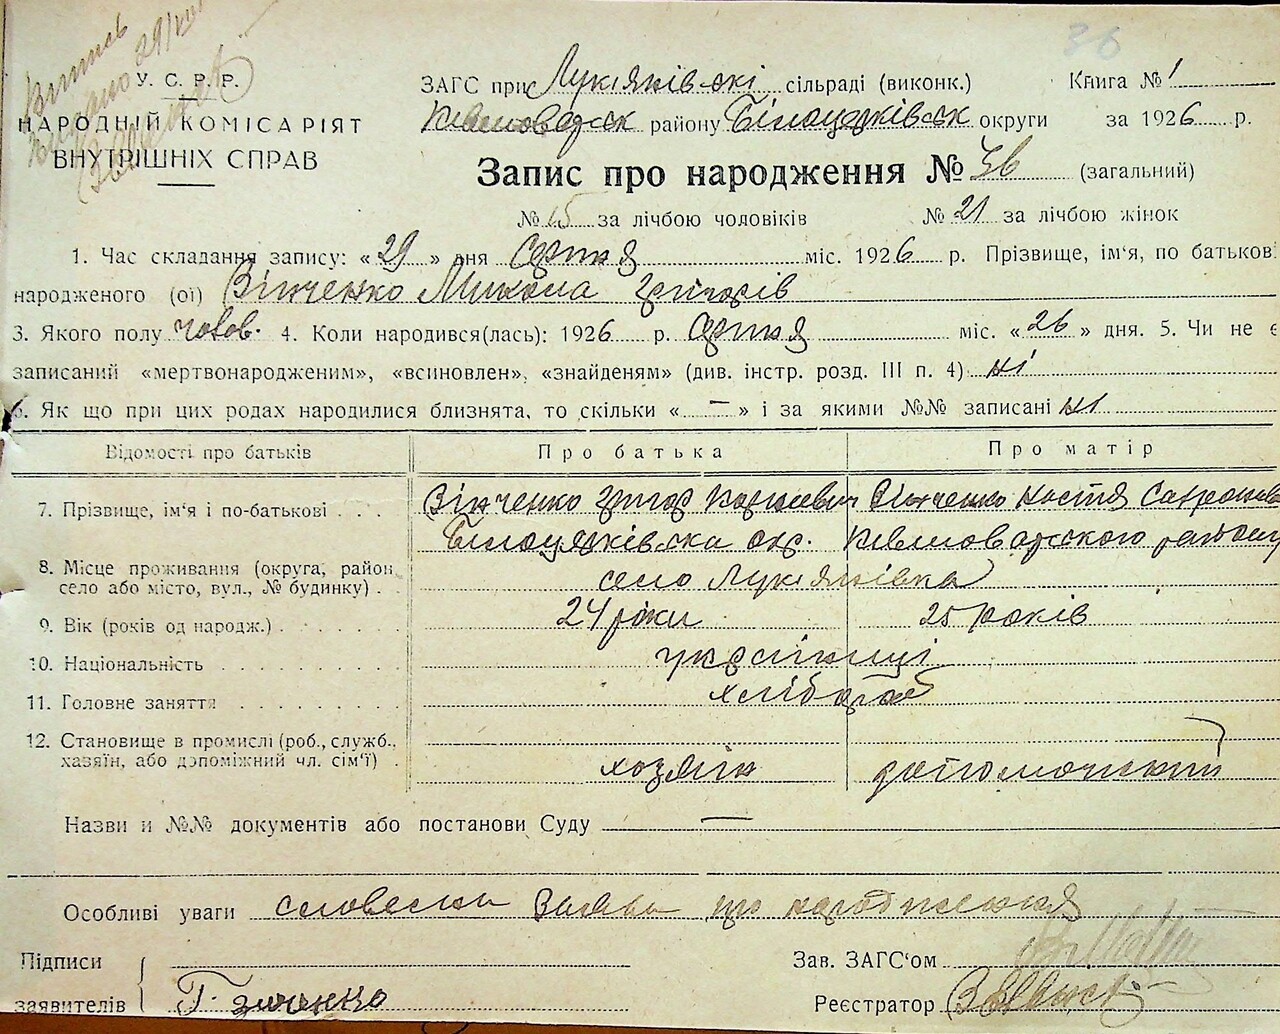 Витись
36
У. С. Р. Р.
НАРОДНІЙ КОМІСАРІЯТ
ВНУТРІШНІХ СПРАВ
ЗАГС при Лукіянівські сільраді (виконк.) Книга № 1
району Білоцерківськ округи за 1926 р.
Запис про народження № 36 (загальний)
№ 15 за лічбою чоловіків № 21 за лічбою жінок
1. Час складання запису: « 29 » дня серпня міс. 1926 р. Прізвище, ім'я, по батьков
народженого (ої) Вінченко Микола Григорів
3. Якого полу чолов. 4. Коли народився(лась): 1926 р. серпня міс. « 26 » дня. 5. Чи не є
записаний «мертвонародженим», «всиновлен», «знайденям» (див. інстр. розд. III п. 4) ні
6. Як що при цих родах народилися близнята, то скільки « — » і за якими №№ записані ні
Відомості про батьків Про батька Про матір
7. Прізвище, ім'я і по-батькові Вінченко Григор Вінченко Настя
Білоцерківська окр.
8. Місце проживання (округа, район, село Лукіянівка
село або місто, вул., № будинку)
9. Вік (років од народж.) 24 роки 25 років
10. Національність українці
11. Головне заняття хлібороб
12. Становище в промислі (роб., служб.,
хазяїн, або допоміжний чл. сім'ї) хозяїн допоможний
Назви и №№ документів або постанови Суду —
Особливі уваги словесна заява про народження
Підписи
заявителів
Зав. ЗАГС'ом
Реєстратор